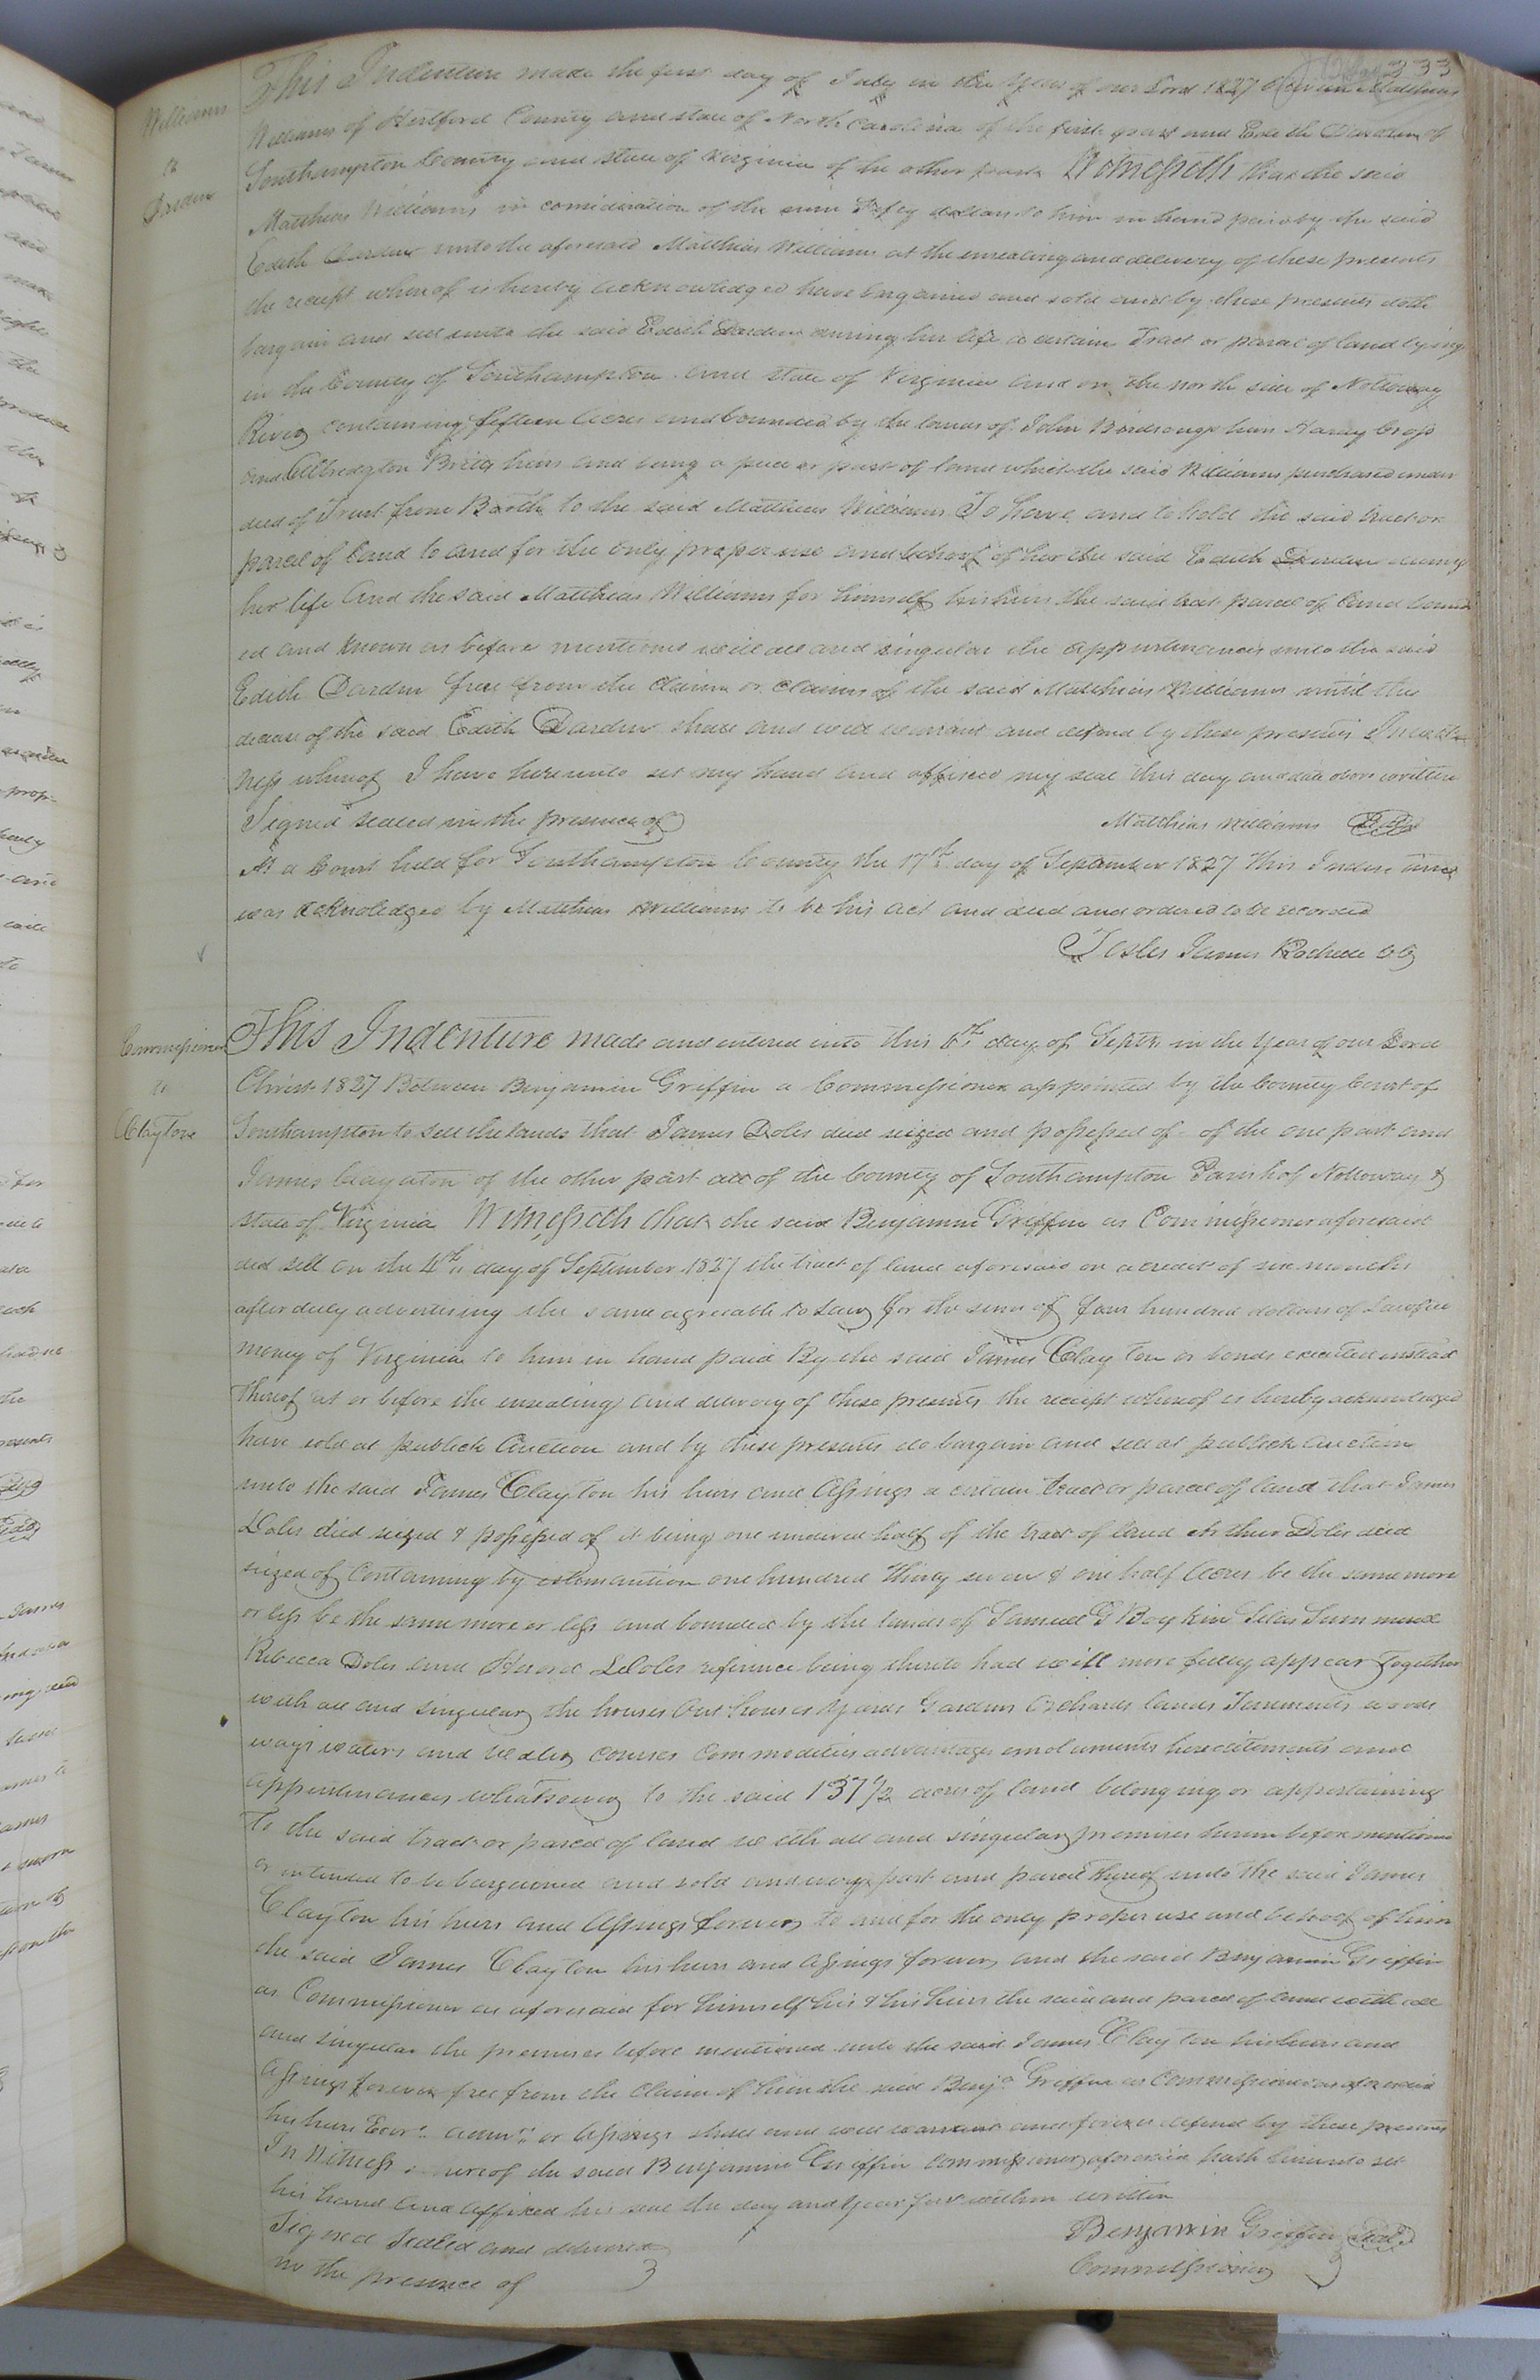 333
Williams
to
Darden
This Indenture made the first day of July in the Year of our Lord 1827 Between Matthias
Williams of Hertford County and state of North Carolina of the first part and Edith Darden of
Southampton County and state of Virginia of the other part Witnesseth that the said
Matthias Williams in consideration of the sum Fifty dollars to him in hand paid by the said
Edith Darden unto the aforesaid Matthias Williams at the ensealing and delivery of these presents
the receipt whereof is hereby acknowledged have bargained and sold and by these presents doth
bargain and sell unto the said Edith Darden during her life a certain Tract or parcel of land lying
in the County of Southampton and state of Virginia and on the north side of Nottoway
River containing fifteen acres and bounded by the lands of John Birdsongs heirs Hardy Cross
and Albridgton Britts heirs and being a piece or part of land which the said Williams purchased under
deed of Trust from Booth to the said Matthias Williams To have and to hold the said tract or
parcel of land to and for the only proper use and behoof of her the said Edith Darden during
her life And the said Matthias Williams for himself his heirs the said parcel of land bound
ed and known as before mentioned with all and singular the appurtenances unto the said
Edith Darden free from the claim or claims of the said Matthias Williams until the
decease of the said Edith Darden shall and will warrant and defend by these presents In wit
ness whereof I have hereunto set my hand and affixed my seal this day and date above written
Signed sealed in the presence of
Matthias Williams
At a Court held for Southampton County the 17th day of September 1827 this Indenture
was acknoledged by Matthias Williams to be his act and deed and ordered to be recorded
Testes James Rochelle CC
Commissioner
to
Clayton
This Indenture made and entered into this 6th day of Septr in the Year of our Lord
Christ 1827 Between Benjamin Griffin a Commissioner appointed by the County Court of
Southampton to sell the lands that James Doles died seized and possessed of of the one part and
James Clayaton of the other part all of the County of Southampton Parish of Nottoway &
state of Virginia Witnesseth that the said Benjamin Griffin as Commissioner aforesaid
did sell on the 4th day of September 1827 the tract of land aforesaid on a credit of six months
after duly advertising the same agreable to Law for the sum of four hundred dollars of Lawful
money of Virginia to him in hand paid By the said James Clayton or bonds executed instead
thereof at or before the ensealing and delivery of these presents the receipt whereof is hereby acknowledged
have sold at publick auction and by these presents do bargain and sell at publick auction
unto the said James Clayton his heirs and Assings a certain tract or parcel of land that James
Doles died seized & possessed of it being one undivid half of the tract of land Arthur Doles died
siezed of Containing by estimation one hundred thirty seven & one half Acres be the same more
or less be the same more or less and bounded by the lands of Samuel G Boykin Silas Summerell
Rebecca Doles and Doles reference being thereto had will more fully appear Together
with all and singular the houses Out houses Yards Gardens Orchards lands Tenements woods
ways waters and Water courses commodities advantages emoluments hereditements and
appurtenances whatsoever to the said 137 1/2 acres of land belonging or appertaining
To the said tract or parcel of land with all and singular premises herein before mentioned
or intended to be bargained and sold and every part and parcel thereof unto the said James
Clayton his heirs and Assings forever to and for the only proper use and behoof of him
the said James Clayton his heirs and Assings forever and the said Benjamin Griffin
as Commissioner as aforesaid for himself his & his heirs the said and parcel of land with all
and singular the premises before mentioned unto the said James Clayton his heirs and
Assings forever free from the claim of him the said Benja Griffin as Commissioner as aforesaid
his heirs Exors admrs or Assings shall and will warrant and forever defend by these presents
In Witness whereof the said Benjamin Griffin commissioner aforesaid hath hereunto set
his hand and affixed his seal the day and Year first within written
Signed Sealed and delivered
in the presence of
Benjamin Griffin Seal
Commissioner